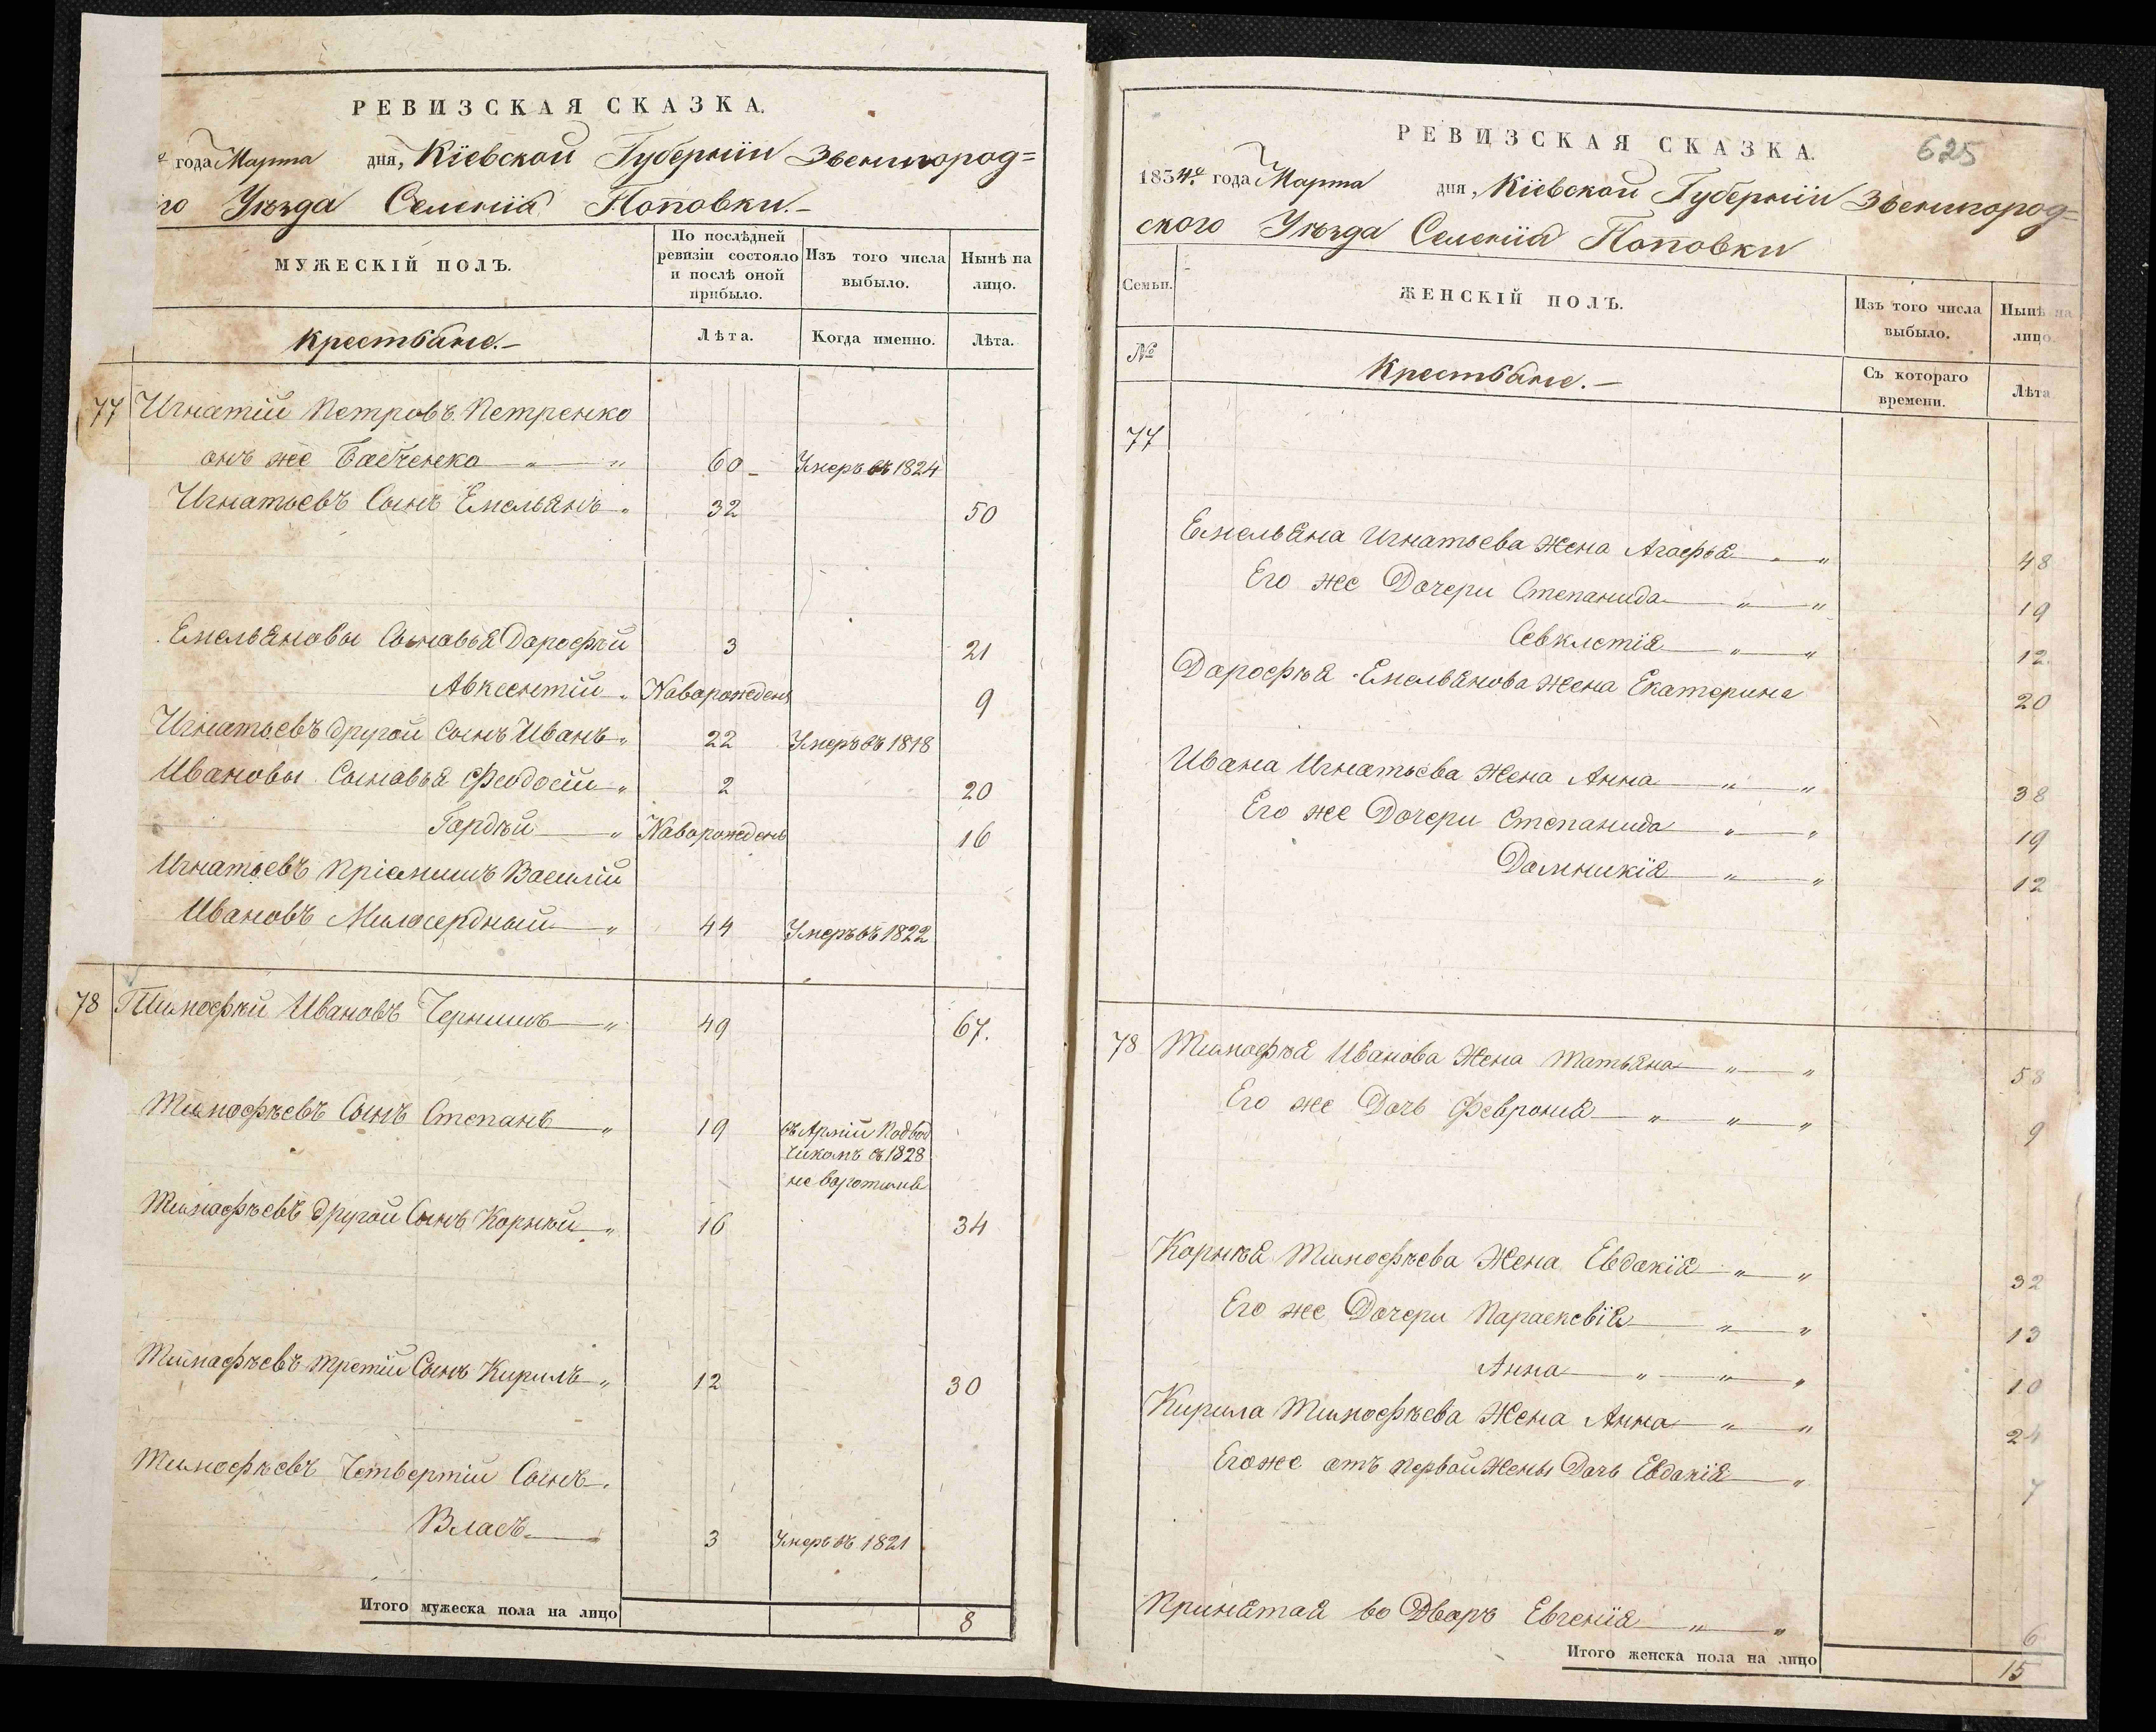 РЕВИЗСКАЯ СКАЗКА.
года Марта дня, Кіевской Губерніи Звенигород=
го Уѣзда Селенія Поповки.–
МУЖЕСКІЙ ПОЛЪ.
По послѣдней ревизіи состояло и послѣ оной прибыло.
Изъ того числа выбыло.
Нынѣ на лицо.
Крестьяне.–
Лѣта.
Когда именно.
Лѣта.
77 Игнатій Петровъ Петренко
онъ же Бабченко 60 Умеръ въ 1824
Игнатьевъ Сынъ Емельянъ 32 50
Емельяновы Сыновья Дорофѣй 3 21
Авксентій Новорожденъ 9
Игнатьевъ другой Сынъ Иванъ 22 Умеръ въ 1818
Ивановы Сыновья Феодосій 2 20
Гордѣй Новорожденъ 16
Игнатьевъ Пріемишъ Василій
Ивановъ Милосердный 44 Умеръ въ 1822
78 Тимофѣй Ивановъ Чернишъ 49 67.
Тимофѣевъ Сынъ Степанъ 19 въ Арміи Подвод
чикомъ въ 1828
не воротился
Тимофѣевъ другой Сынъ Корнѣй 16 34
Тимофѣевъ третій Сынъ Кирилъ 12 30
Тимофѣевъ Четвертій Сынъ
Власъ 3 Умеръ въ 1821
Итого мужеска пола на лицо 8
РЕВИЗСКАЯ СКАЗКА.
625
1834го года Марта дня, Кіевской Губерніи Звенигород=
ского Уѣзда Селенія Поповки
Семьи.
ЖЕНСКІЙ ПОЛЪ.
Изъ того числа выбыло.
Нынѣ на лицо.
№
Крестьяне.–
Съ котораго времени.
Лѣта
77
Емельяна Игнатьева Жена Агафья 48
Его же Дочери Степанида 19
Февклетія 12
Дорофѣя Емельянова Жена Екатерина 20
Ивана Игнатьева Жена Анна 38
Его же Дочери Степанида 19
Домникія 12
78 Тимофѣя Иванова Жена Татьяна 58
Его же Дочь Феврония 9
Корнѣя Тимофѣева Жена Евдокія 32
Его же Дочери Параскевія 13
Анна 10
Кирила Тимофѣева Жена Анна 24
Егоже отъ первой Жены Дочь Евдокія 7
Принятая во Дворъ Евгенія 6
Итого женска пола на лицо 15